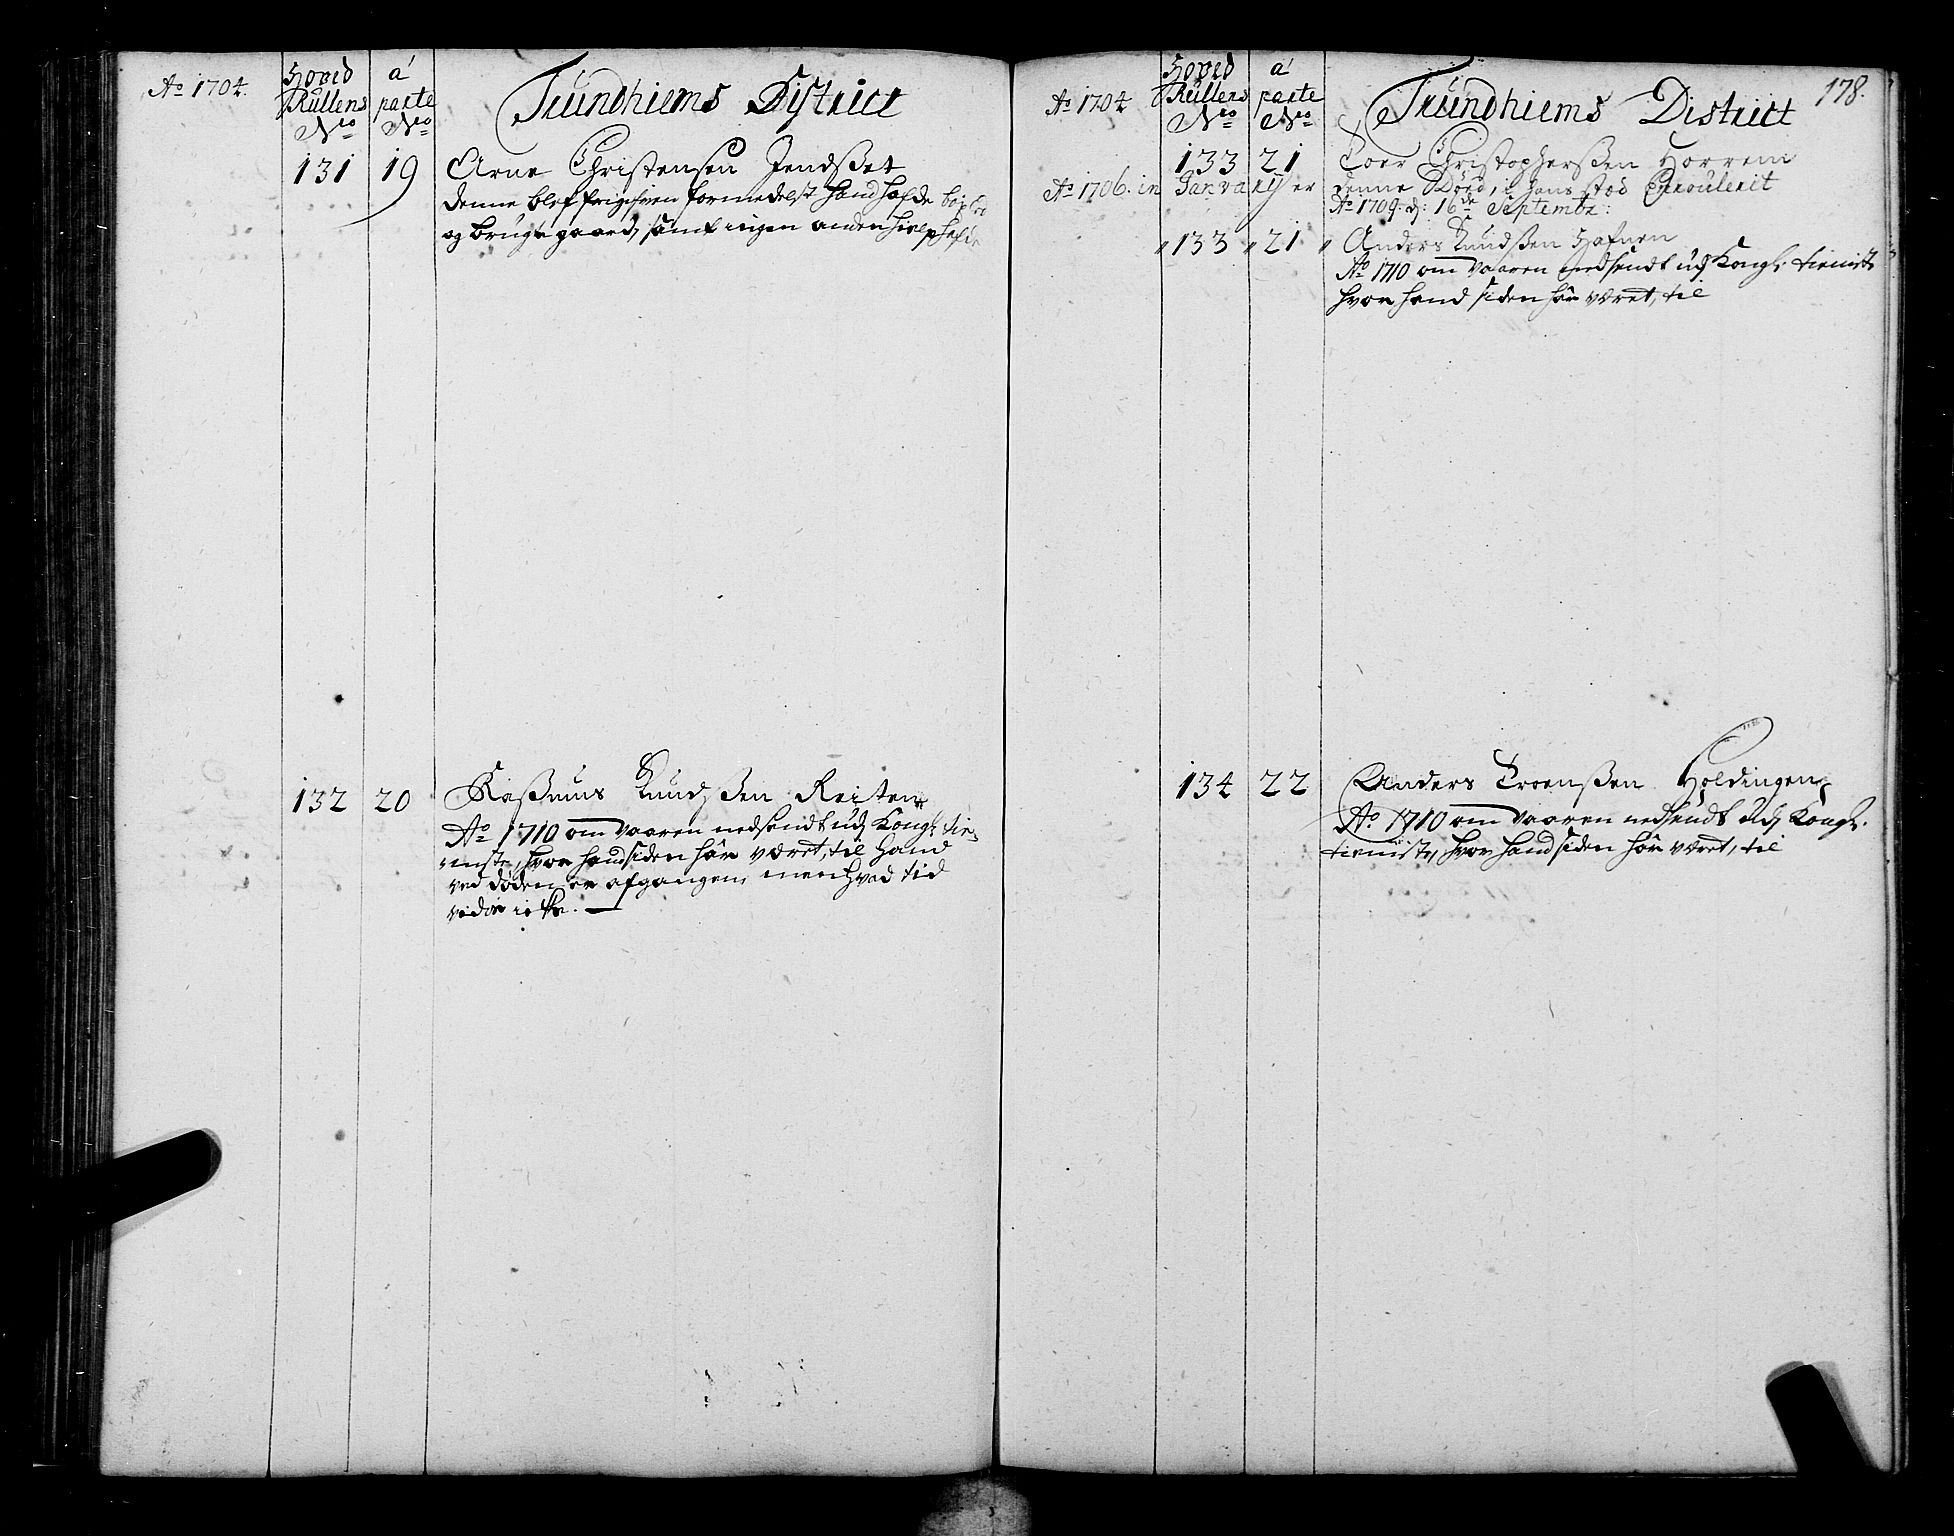 Ao 1704.
Hoved Rullens No
a' parte No
Trundhiems District
131 19 Arne Christensen Jendsset
denne blef frigifven formedelst hand hafde
og brugte gaard, samt ingen anden hielp hafde
132 20 Rasmus Knudssen Reiten
Ao 1710 om Vaaren nedsendt udj Kongl: tie-
niste, hvor hand siden har været, til hand
ved døden er afgangen, men hvad tid
vides icke. —
178.
Ao 1704
Hoved Rullens No
a' parte No
Trundhiems District
133 21 Toer Christophersen Horrem
Ao 1706. in Januarij er denne Død, i hans stæd Enroulerit
Ao 1709. d: 16de Septembr:
133 21 Anders Knudssen Hafnen
Ao 1710 om Vaaren nedsendt udj Kongl: tieniste
hvor hand siden har været, til
134 22 Anders Troenssen Holdingen
Ao 1710 om Vaaren nedsendt udj Kongl:
tieniste, hvor hand siden har været, til